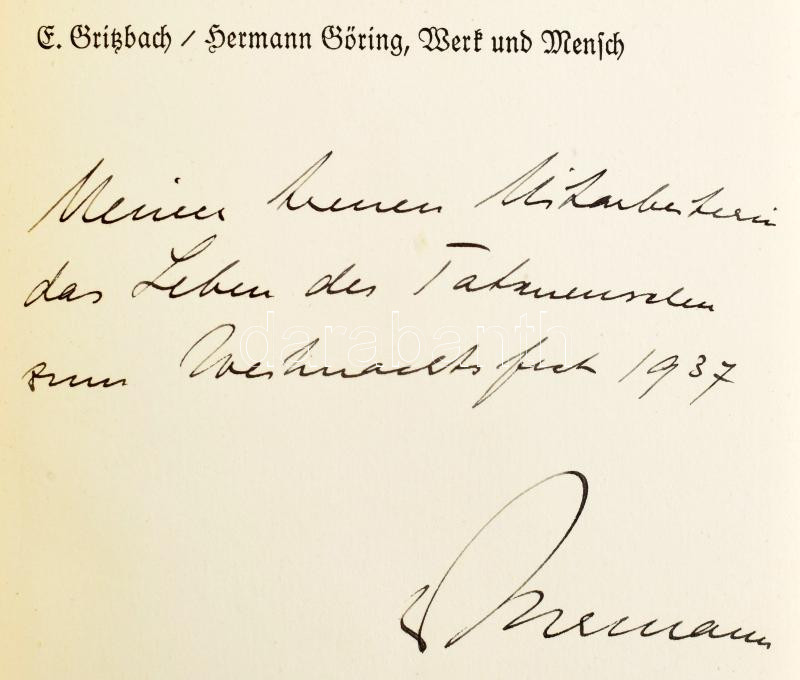 E. Gritzbach / Hermann Göring, Werk und Mensch
Meinen treuen Mitarbeitern
das Leben des Tatmenschen
zum Weihnachtsfest 1937
darabanth